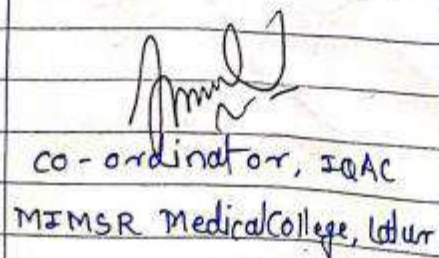 co-ordinator, IQAC
MIMSR Medical College, Latur